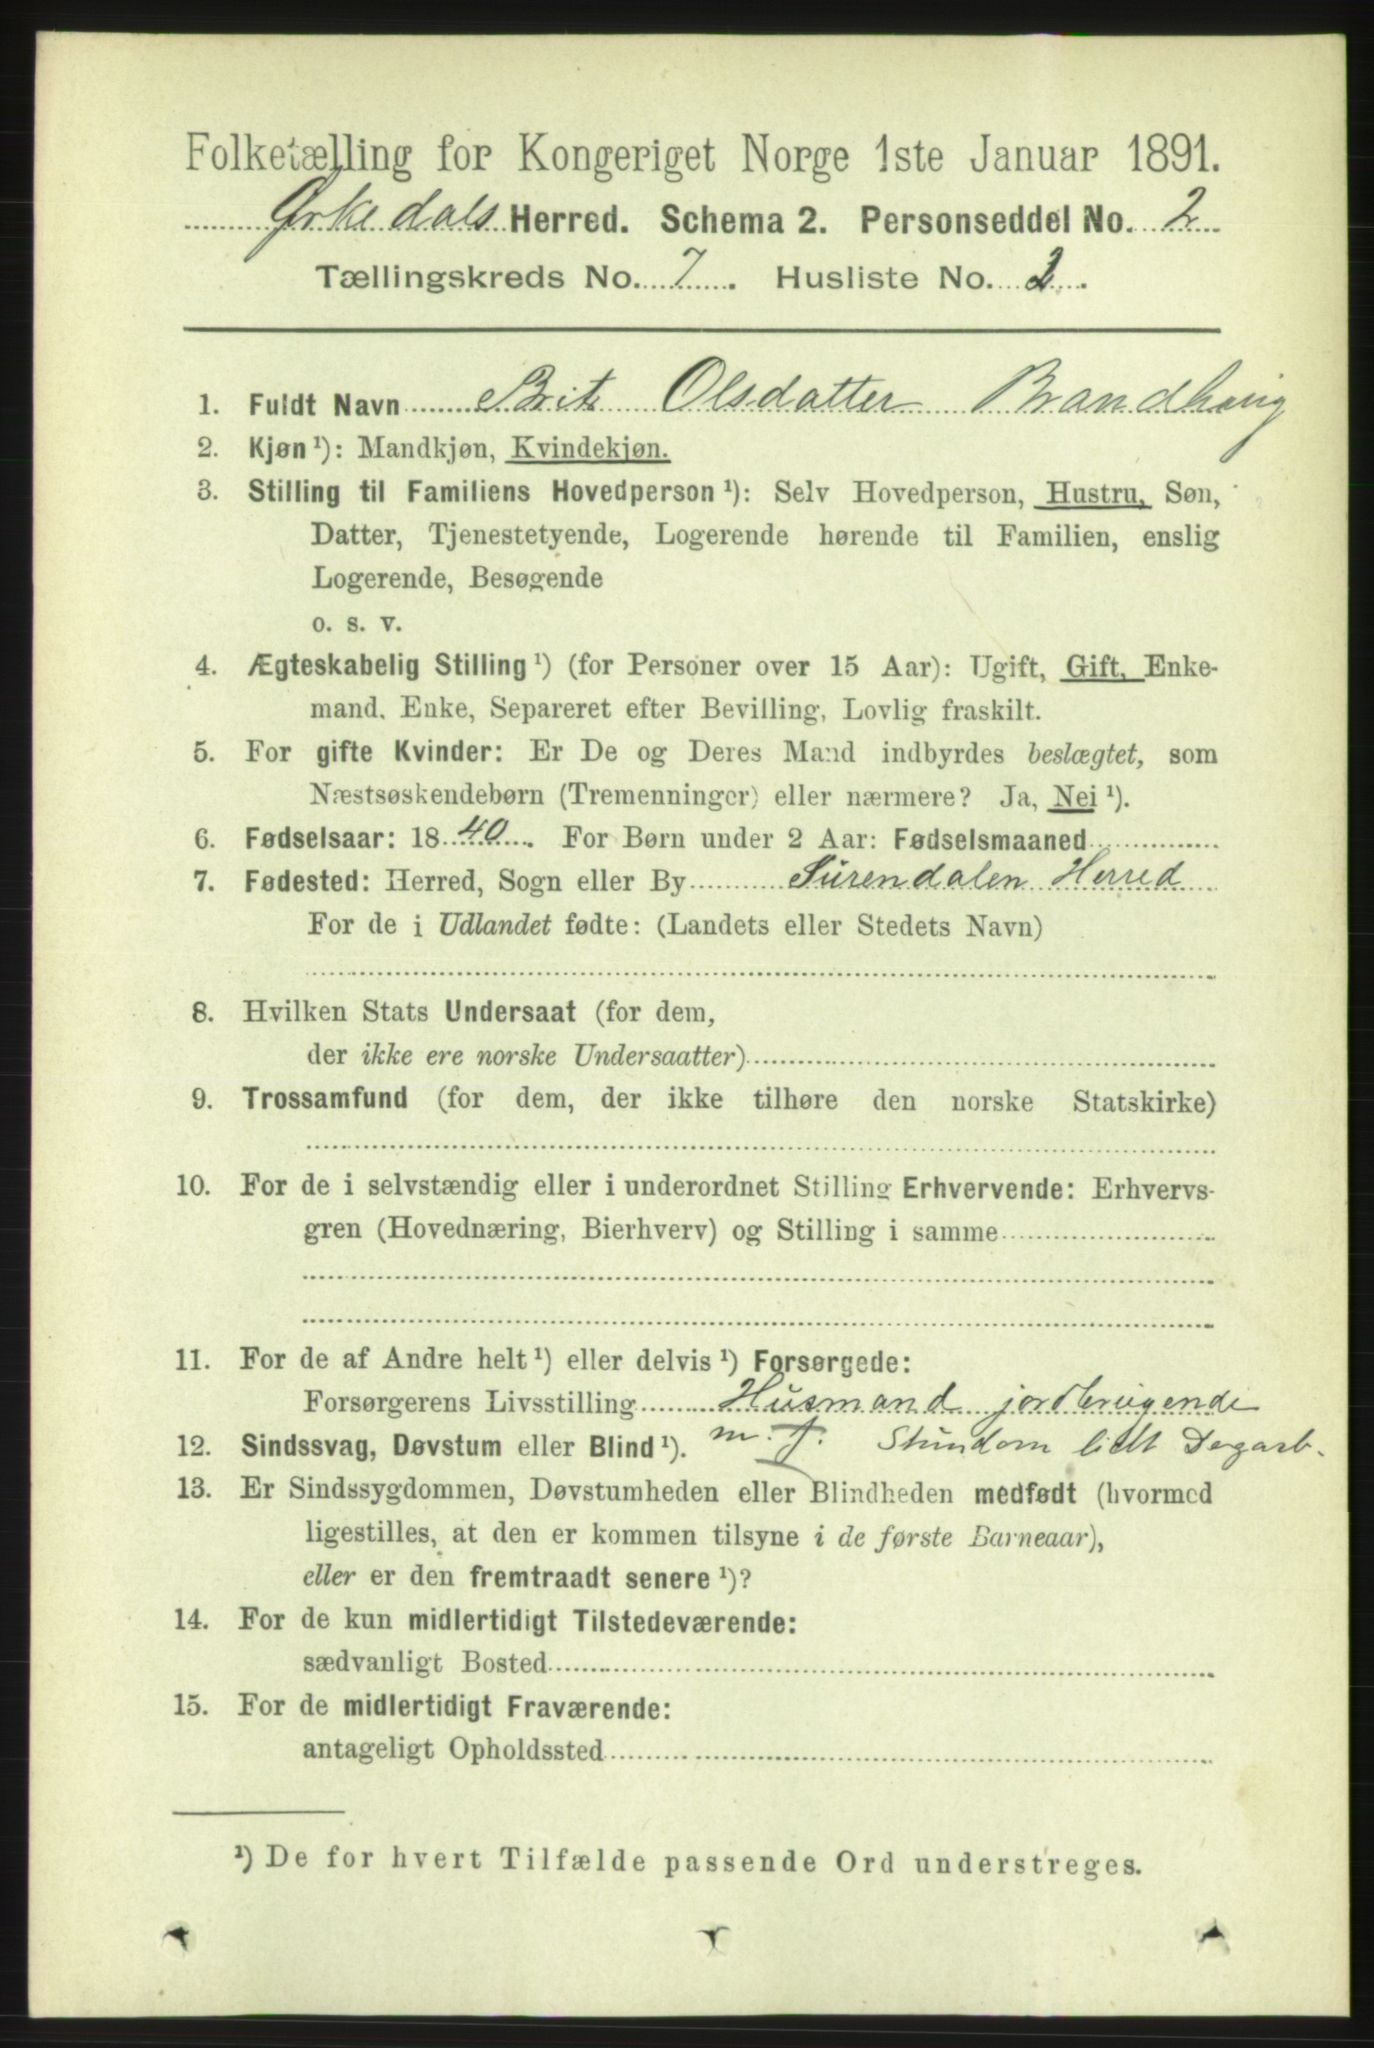 Folketælling for Kongeriget Norge 1ste Januar 1891.
Ørkedals Herred. Schema 2. Personseddel No. 2
Tællingskreds No. 7. Husliste No. 2.
1. Fuldt Navn Brit Olsdatter Brandhaug
2. Kjøn ¹): Mandkjøn, Kvindekjøn.
3. Stilling til Familiens Hovedperson ¹): Selv Hovedperson, Hustru, Søn,
Datter, Tjenestetyende, Logerende hørende til Familien, enslig
Logerende, Besøgende
o. s. v.
4. Ægteskabelig Stilling ¹) (for Personer over 15 Aar): Ugift, Gift, Enke-
mand, Enke, Separeret efter Bevilling, Lovlig fraskilt.
5. For gifte Kvinder: Er De og Deres Mand indbyrdes beslægtet, som
Næstsøskendebørn (Tremenninger) eller nærmere? Ja, Nei ¹).
6. Fødselsaar: 1840. For Børn under 2 Aar: Fødselsmaaned
7. Fødested: Herred, Sogn eller By Surendalen Herred
For de i Udlandet fødte: (Landets eller Stedets Navn)
8. Hvilken Stats Undersaat (for dem,
der ikke ere norske Undersaatter)
9. Trossamfund (for dem, der ikke tilhøre den norske Statskirke)
10. For de i selvstændig eller i underordnet Stilling Erhvervende: Erhvervs-
gren (Hovednæring, Bierhverv) og Stilling i samme
11. For de af Andre helt ¹) eller delvis ¹) Forsørgede:
Forsørgerens Livsstilling Husmand jordbrugende
12. Sindssvag, Døvstum eller Blind ¹). m. J. Stundom lidt Dagarb.
13. Er Sindssygdommen, Døvstumheden eller Blindheden medfødt (hvormed
ligestilles, at den er kommen tilsyne i de første Barneaar),
eller er den fremtraadt senere ¹)?
14. For de kun midlertidigt Tilstedeværende:
sædvanligt Bosted
15. For de midlertidigt Fraværende:
antageligt Opholdssted
¹) De for hvert Tilfælde passende Ord understreges.